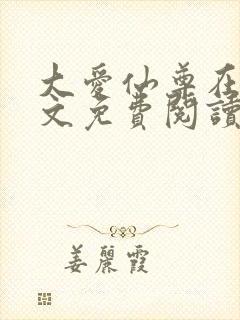 大爱仙尊在
文免费阅读
姜丽霞